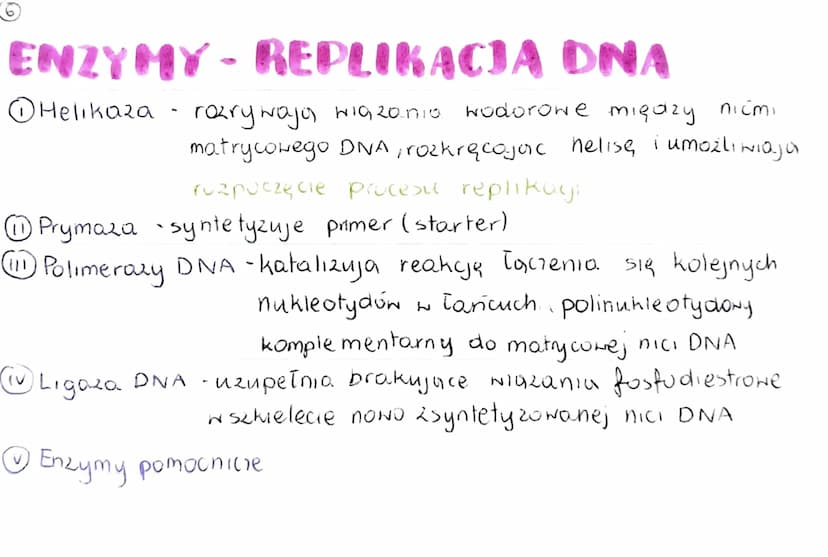 6
ENZYMY - REPLIKACJA DNA
I Helikaza - rozrywają wiązania wodorowe między nićmi
matrycowego DNA, rozkręcając helisę i umożliwiają
rozpoczęcie procesu replikacji
II Prymaza - syntetyzuje primer (starter)
III Polimerazy DNA - katalizują reakcję łączenia się kolejnych
nukleotydów w łańcuch polinukleotydowy
komplementarny do matycowej nici DNA
IV Ligaza DNA - uzupełnia brakujące wiązania fosfodiestrowe
w szkielecie nowo zsyntetyzowanej nici DNA
V Enzymy pomocnicze